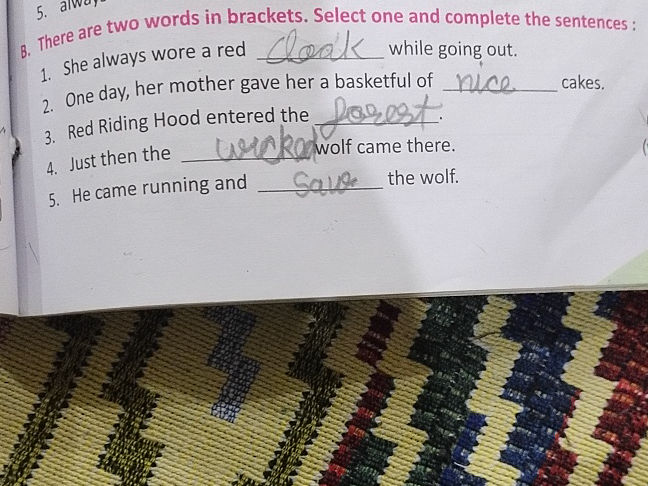 5. alway
B. There are two words in brackets. Select one and complete the sentences :
1. She always wore a red cloak while going out.
2. One day, her mother gave her a basketful of nice cakes.
3. Red Riding Hood entered the forest.
4. Just then the wicked wolf came there.
5. He came running and save the wolf.